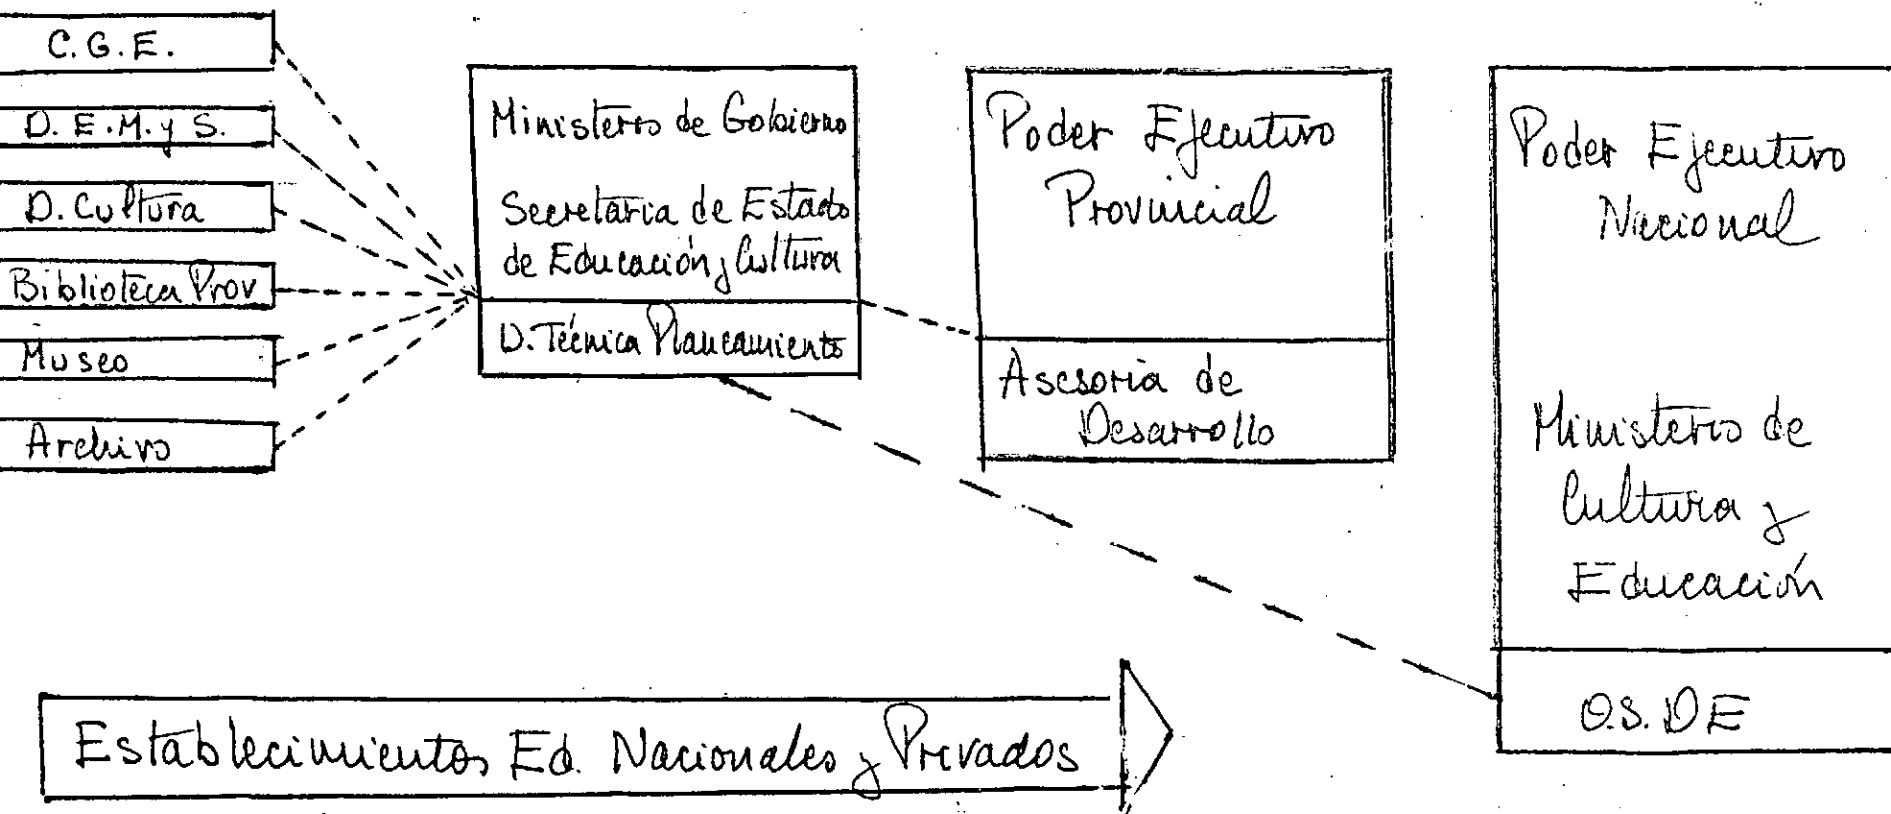 C.G.E.
D.E.M.y S.
D. Cultura
Biblioteca Prov
Museo
Archivo
Ministerio de Gobierno
Secretaria de Estado
de Educación y Cultura
D. Técnica Planeamiento
Poder Ejecutivo
Provincial
Asesoria de
Desarrollo
Poder Ejecutivo
Nacional
Ministerio de
Cultura y
Educación
O.S.D E
Establecimientos Ed. Nacionales y Privados